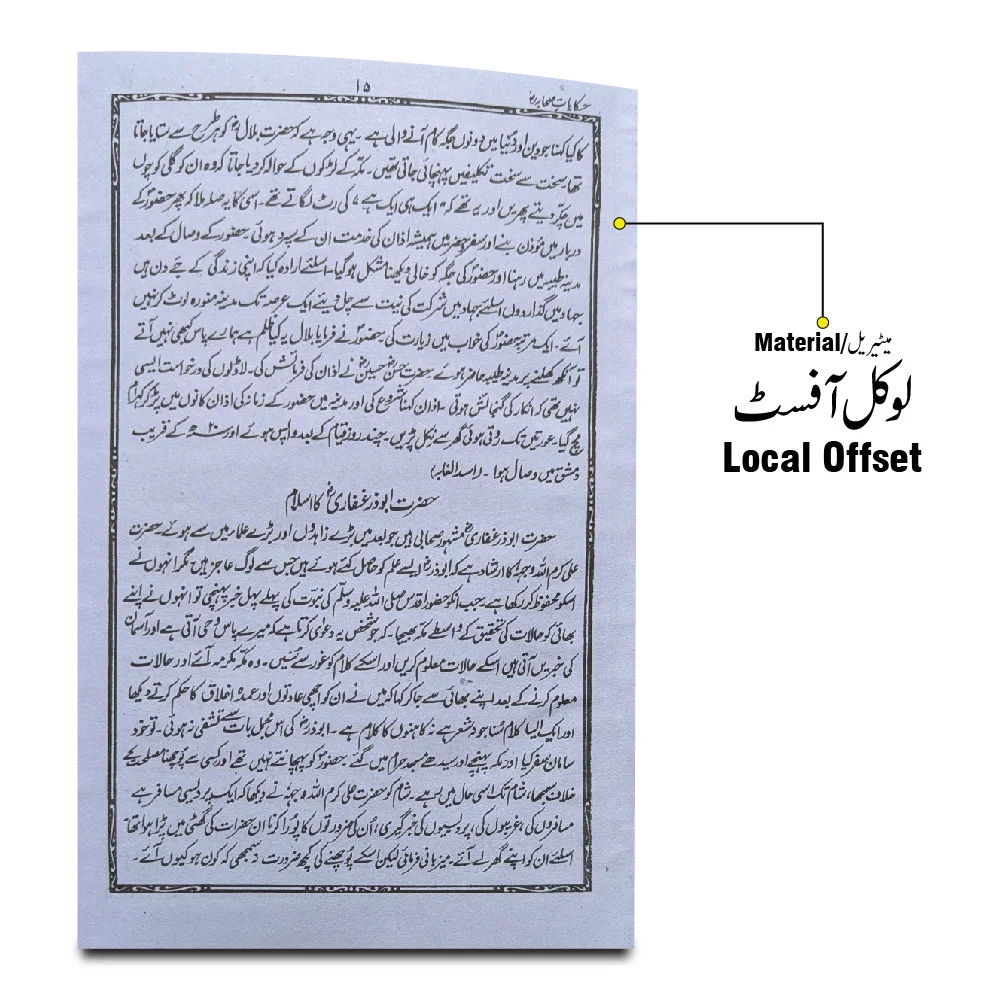 ۱۵
حکایات صحابہ رض
کا کیا کہنا جو دین اور دنیا میں دونوں جگہ کام آنے والی ہے ۔ یہی وجہ ہے کہ حضرت بلال رض کو ہر طرح سے ستایا جاتا
تھا، سخت سے سخت تکلیفیں پہنچائی جاتی تھیں ۔ مکہ کے لڑکوں کے حوالہ کر دیا جاتا کہ وہ ان کو گلی کوچوں
میں چکر دیتے پھریں اور یہ تھے کہ " ایک ہی ایک ہے " کی رٹ لگاتے تھے ۔ اسی کا یہ صلہ ملا کہ پھر حضور کے
دربار میں مؤذن بنے اور سفر وحضر میں ہمیشہ اذان کی خدمت ان کے سپرد ہوئی ۔ حضور کے وصال کے بعد
مدینہ طیبہ میں رہنا اور حضور کی جگہ کو خالی دیکھنا مشکل ہو گیا ۔ اسلئے ارادہ کیا کہ اپنی زندگی کے جتنے دن ہیں
جہاد میں گذار دوں اسلئے جہاد میں شرکت کی نیت سے چل دیئے ایک عرصہ تک مدینہ منورہ لوٹ کر نہیں
آئے ۔ ایک مرتبہ حضور کی خواب میں زیارت کی حضور نے فرمایا بلال یہ کیا ظلم ہے ہمارے پاس کبھی نہیں آتے
تو آنکھ کھلنے پر مدینہ طیبہ حاضر ہوئے حضرت حسن حسین رض نے اذان کی فرمائش کی ۔ لاڈلوں کی درخواست ایسی
نہیں تھی کہ انکار کی گنجائش ہوتی ۔ اذان کہنا شروع کی اور مدینہ میں حضور کے زمانہ کی اذان کانوں میں پڑ کر کہرام
مچ گیا ۔ عورتیں تک روتی ہوئی گھر سے نکل پڑیں ۔ چند روز قیام کے بعد واپس ہوئے اور ۲۰ھ کے قریب
دمشق میں وصال ہوا ۔ (اسد الغابہ)
حضرت ابوذر غفاری رض کا اسلام
حضرت ابوذر غفاری رض مشہور صحابی ہیں جو بعد میں بڑے زاہدوں اور بڑے علماء میں سے ہوئے ۔ حضرت
علی کرم اللہ وجہہٗ کا ارشاد ہے کہ ابوذر ایسے علم کو حاصل کئے ہوئے ہیں جس سے لوگ عاجز ہیں ۔ مگر انہوں نے
اسکو محفوظ کر رکھا ہے ۔ جب انکو حضور اقدس صلی اللہ علیہ وسلم کی نبوت کی پہلے پہل خبر پہنچی تو انہوں نے اپنے
بھائی کو حالات کی تحقیق کے واسطے مکہ بھیجا ۔ کہ جو شخص یہ دعوٰی کرتا ہے کہ میرے پاس وحی آتی ہے اور آسمان
کی خبریں آتی ہیں اسکے حالات معلوم کریں اور اسکے کلام کو غور سے سنیں ۔ وہ مکہ مکرمہ آئے اور حالات
معلوم کرنے کے بعد اپنے بھائی سے جا کر کہا کہ میں نے ان کو اچھی عادتوں اور عمدہ اخلاق کا حکم کرتے دیکھا
اور ایک ایسا کلام سنا جو نہ شعر ہے نہ کاہنوں کا کلام ہے ۔ ابوذر رض کی اس مجمل بات سے تشفی نہ ہوئی ۔ تو خود
سامان سفر کیا اور مکہ پہنچے اور سیدھے مسجد حرام میں گئے حضور کو پہچانتے نہیں تھے اور کسی سے پوچھنا مصلحت کے
خلاف سمجھا، شام تک اسی حال میں رہے ۔ شام کو حضرت علی کرم اللہ وجہہٗ نے دیکھا کہ ایک پردیسی مسافر ہے
مسافروں کی، غریبوں کی، پردیسیوں کی خبر گیری، اُن کی ضرورتوں کا پورا کرنا ان حضرات کی گھٹی میں پڑا ہوا تھا
اسلئے ان کو اپنے گھر لے آئے ۔ میزبانی فرمائی لیکن اسکے پوچھنے کی کچھ ضرورت نہ سمجھی کہ کون ہو کیوں آئے ۔
Material/میٹیریل
لوکل آفسٹ
Local Offset